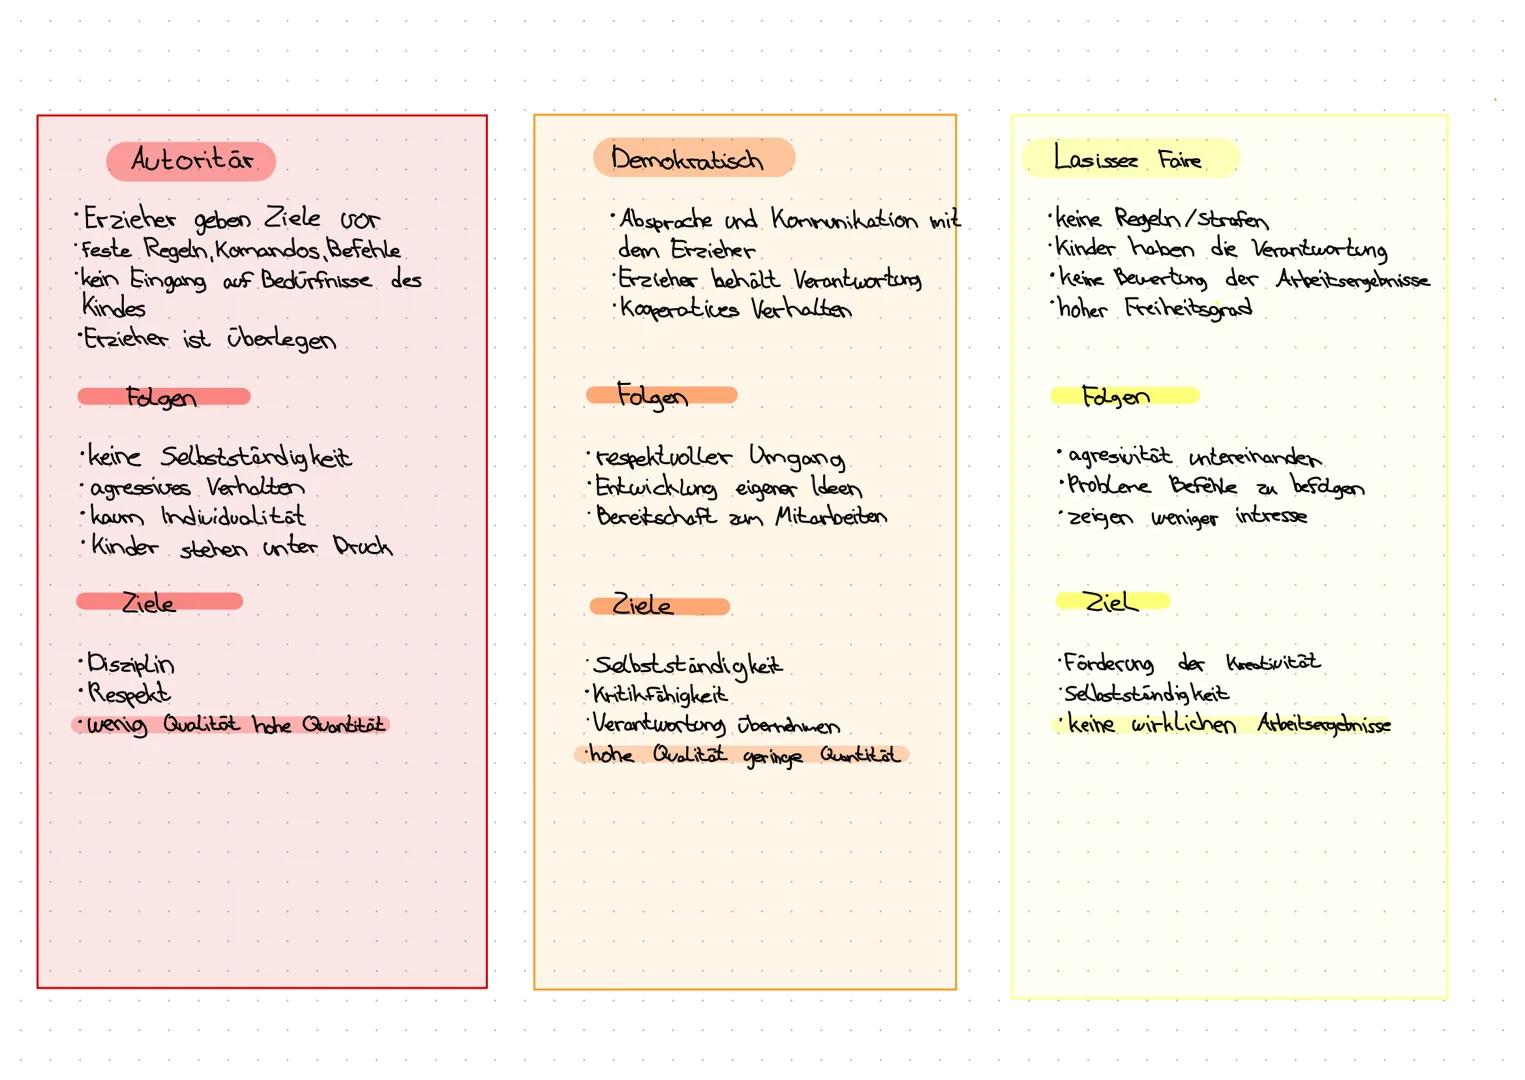 Autoritär
· Erzieher geben Ziele vor
· feste Regeln, Komandos, Befehle
· kein Eingang auf Bedürfnisse des
Kindes
· Erzieher ist überlegen
Folgen
· keine Selbstständigkeit
· agressives Verhalten
· kaum Individualität
· Kinder stehen unter Druck
Ziele
· Disziplin
· Respekt
· wenig Qualität hohe Quantität
Demokratisch
· Absprache und Kommunikation mit
dem Erzieher
· Erzieher behält Verantwortung
· Kooperatives Verhalten
Folgen
· respektvoller Umgang
· Entwicklung eigener Ideen
· Bereitschaft zum Mitarbeiten
Ziele
· Selbstständigkeit
· Kritikfähigkeit
· Verantwortung übernehmen
· hohe Qualität geringe Quantität
Lasissez Faire
· keine Regeln/Strafen
· Kinder haben die Verantwortung
· keine Bewertung der Arbeitsergebnisse
· hoher Freiheitsgrad
Folgen
· agresivität untereinanden
· Probleme Befehle zu befolgen
· zeigen weniger intresse
Ziel
· Förderung der Kreativität
· Selbstständigkeit
· keine wirklichen Arbeitsergebnisse